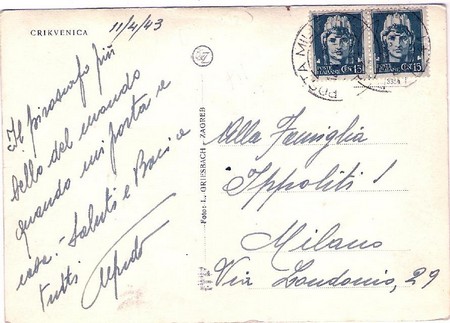 CRIKVENICA
11/4/43
Il piroscafo più
bello del mondo
quando mi porta a
casa. - Saluti e Baci a
tutti
Alfredo
Foto: L. GRIESBACH - ZAGREB
POSTE ITALIANE
Cent 15
POSTE ITALIANE
Cent 15
POSTA MIL
Alla Famiglia
Ippoliti
Milano
Via Londonio, 29